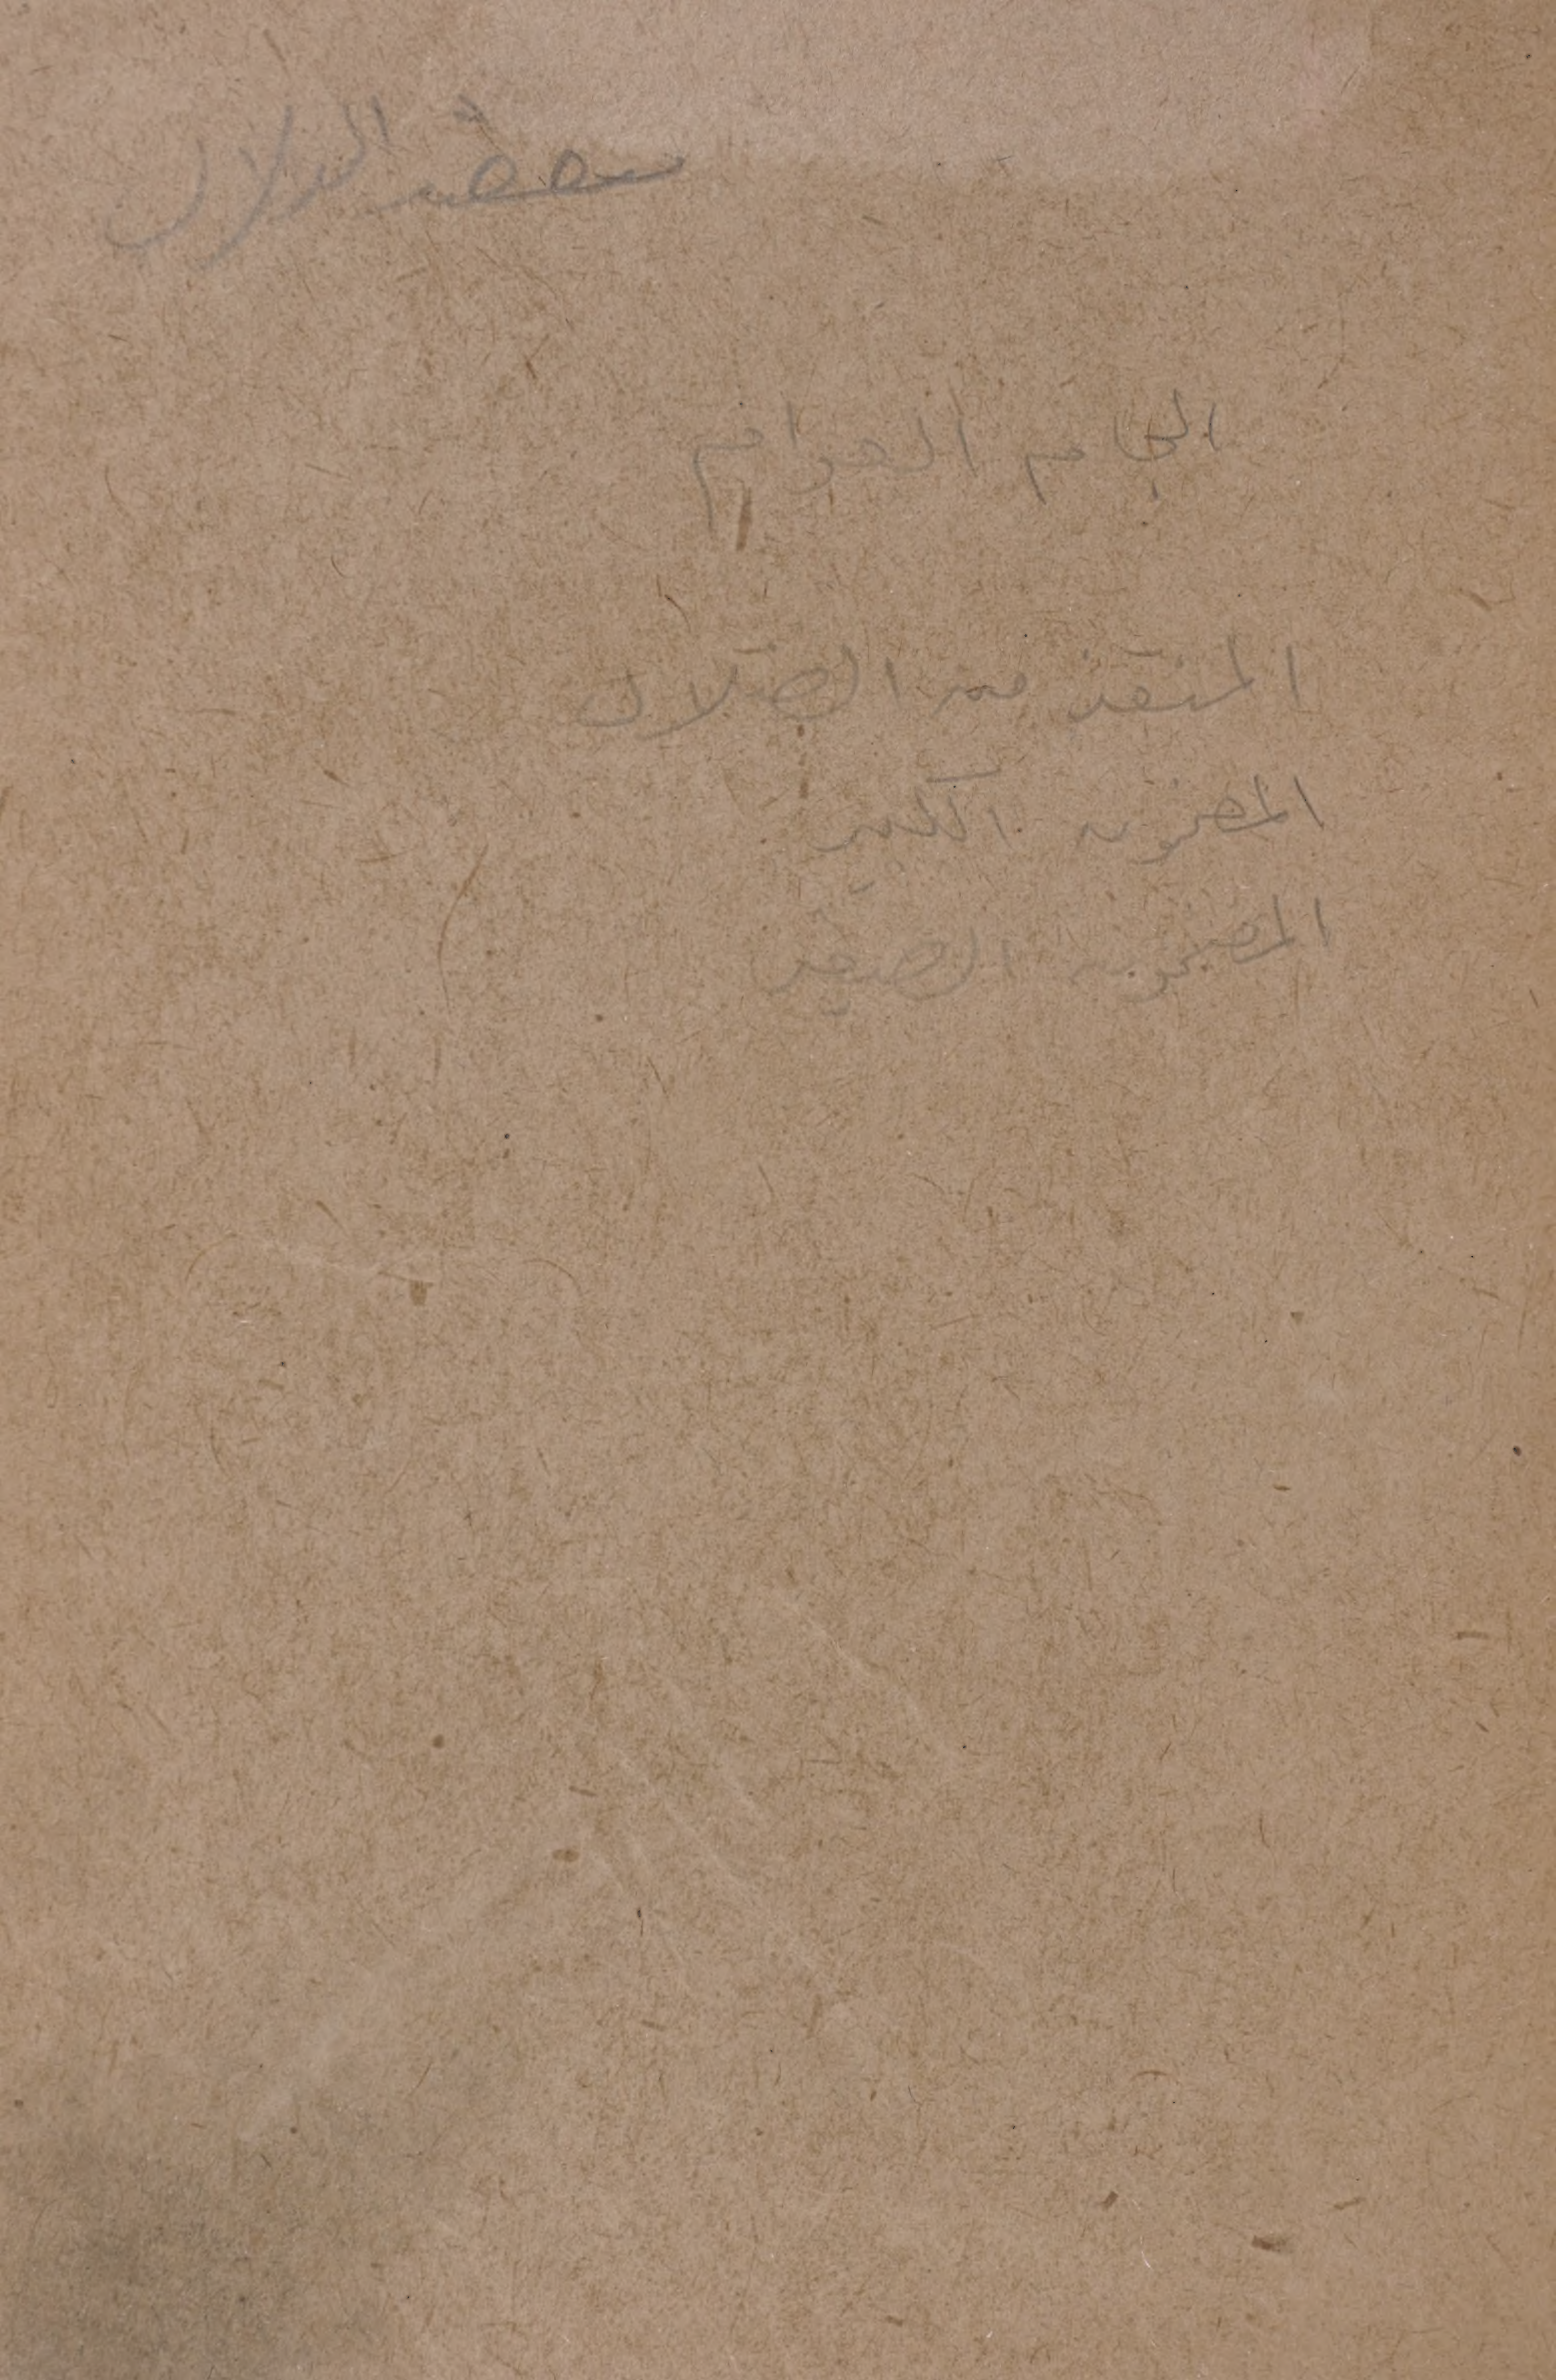 الجام العوام
المنقذ من الضلال
المضمون الكبير
المضمون الصغير